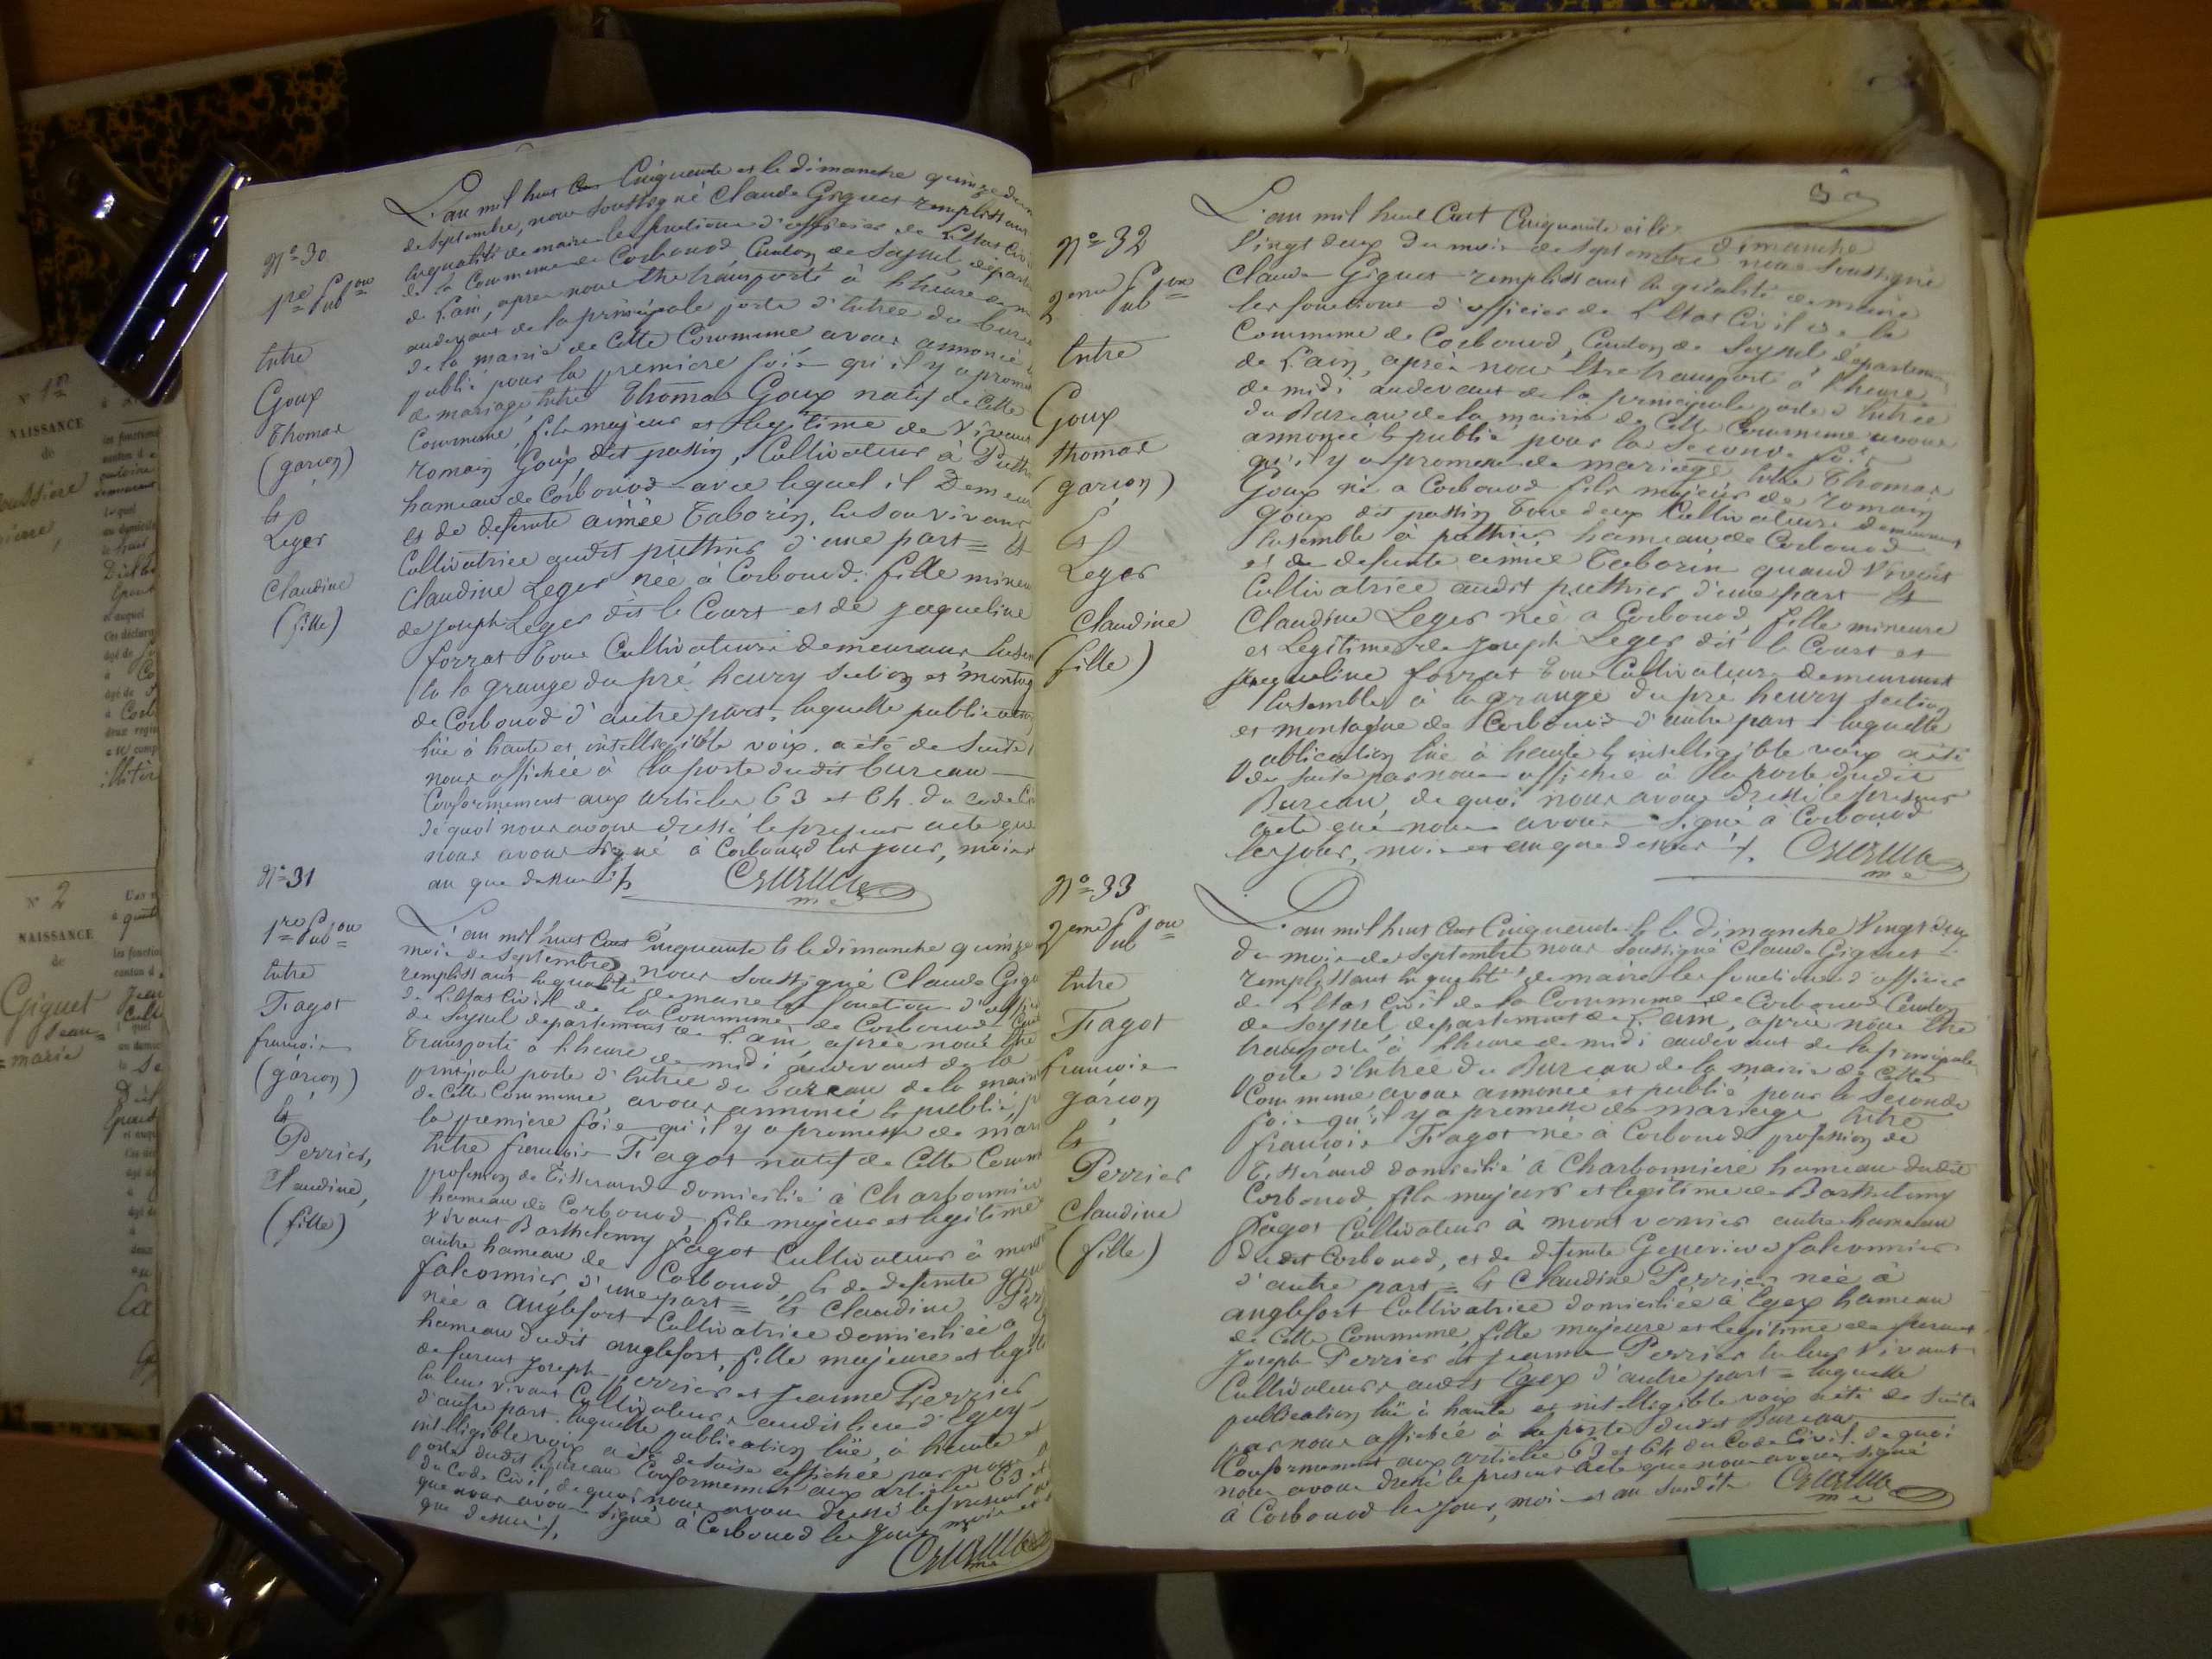 N° 30
1re Pub on
Entre
Goux
Thomas
(garçon)
Et
Leger
Claudine
(fille)
L'an mil huit Cent Cinquante et le dimanche quinze du
de Septembre, nous soussigné Claude Giguet remplissant
la qualité de maire les fonctions d'officier de L'Etat Civil
de la Commune de Corbonod, Canton de Seyssel, départ
de L'ain, après nous être transporté à l'heure de
audevant de la principale porte d'Entrée du bureau
de la mairie de Cette Commune avons annoncé
publié pour la première fois qu'il y a prom
de mariage Entre Thomas Goux natif de Cette
Commune, fils majeur et legitime de Vivant
romain Goux dit passin, Cultivateur à Puth
hameau de Corbonod avec lequel il Demeur
et de defunte aimée Taborin, En son vivant
Cultivatrice audit puthier d'une part = Et
Claudine Leger née à Corbonod. fille mineu
de Joseph Leger dit le Court et de jaqueline
forrat tous Cultivateurs demeurant Ensem
En la grange du pré henry Section et montag
de Corbonod d'autre part, laquelle publication
lüe à haute et intelligible voix. a été de Suite
nous affichée à la porte dudit bureau
Conformement aux articles 63 et 64 du code Ci
de quoi nous avons dressé le present acte que
nous avons signé à Corbonod les jour, mois
an que dessus ./.
N° 31
1re Pub on
Entre
Fagot
françois
(garçon)
Et
Perrier,
Claudine,
(fille)
L'an mil huit Cent Cinquante Et le dimanche quinze
mois de Septembre nous Soussigné Claude Gigu
remplissant la qualité de maire les fonctions d'offici
de L'Etat Civil de la Commune de Corbonod Cant
de Seyssel departement de L'ain, après nous être
transporté à l'heure de midi audevant de la
principale porte d'Entrée du bureau de la mairi
de Cette Commune, avons annoncé Et publié, p
la premiere fois qu'il y a promesse de mari
Entre françois Fagot natif de Cette Comm
profession de Tisserand domicilié à Charbonnier
hameau de Corbonod, fils majeur et legitime
Vivant Barthelemy fagot Cultivateur à mont
autre hameau de Corbonod, Et de defunte gen
falconnier, d'une part = Et Claudine Per
née a anglefort Cultivatrice domiciliée a
hameau dudit anglefort, fille majeure et legit
defunts Joseph Perrier et Jeanne Perrier
En leur vivant Cultivateurs audit lieu d'Egex
d'autre part. laquelle publication lüe, à haute et
intelligible voix a été de suite affichée par nous
porte dudit bureau Conformement aux articles 63 et
du Code Civil, de quoi nous avons dressé le present
que nous avons signé à Corbonod les jour mois et
que dessus ./.
N° 32
2eme Pub on
Entre
Goux
thomas
(garçon)
Et
Leger
Claudine
(fille)
L'an mil huit Cent Cinquante et le dimanche
Vingt deux du mois de Septembre nous Soussigné
Claude Giguet remplissant la qualité de maire
les fonctions d'officier de L'Etat Civil de la
Commune de Corbonod, Canton de Seyssel, departement
de L'ain, après nous être transporté à l'heure
de midi audevant de la principale porte d'Entrée
du Bureau de la mairie de Cette Commune avons
annoncé Et publié pour la Seconde fois
qu'il y a promesse de mariage Entre Thomas
Goux né a Corbonod fils majeur de romain
goux dit passin tous deux Cultivateurs demeurant
Ensemble à puthier hameau de Corbonod
et de defunte aimée Taborin quand Vivait
Cultivatrice audit puthier, d'une part Et
Claudine Leger née a Corbonod, fille mineure
et Legitime de Joseph Leger dit le Court et
jaqueline forrat tous Cultivateurs demeurant
Ensemble, à la grange du pré henry section
et montagne de Corbonod d'autre part laquelle
publication lüe à haute Et intelligible voix a été
de suite par nous affichée à la porte dudit
Bureau, de quoi nous avons dressé le present
acte que nous avons signé à Corbonod
les jour, mois et an que dessus ./.
N° 33
2eme Pub on
Entre
Fagot
françois
garçon
Et
Perrier
Claudine
(fille)
L'an mil huit Cent Cinquante Et le dimanche Vingt deux
du mois de Septembre nous Soussigné Claude Giguet
remplissant la qualité de maire les fonctions d'officier
de L'Etat Civil de la Commune de Corbonod Canton
de Seyssel, departement de L'ain, après nous être
transporté à l'heure de midi audevant de la principale
porte d'Entrée du Bureau de la mairie de Cette
Commune avons annoncé et publié pour la Seconde
fois qu'il y a promesse de mariage Entre
françois Fagot né à Corbonod profession de
Tisserand domicilié à Charbonniere hameau dudit
Corbonod, fils majeur et legitime de Barthelemy
fagot Cultivateur à mont vernier autre hameau
dudit Corbonod, et de defunte Genevieve falconnier
d'autre part = Et Claudine Perrier née à
anglefort Cultivatrice domiciliée à Egex hameau
de Cette Commune, fille majeure et legitime de defunts
Joseph Perrier et Jeanne Perrier En leur Vivant
Cultivateurs audit Egex d'autre part = laquelle
publication lüe à haute et intelligible voix a été de suite
par nous affichée à la porte dudit Bureau
Conformement aux articles 63 et 64 du Code Civil. de quoi
nous avons dressé le present acte que nous avons signé
à Corbonod les jour, mois et an susdits
N° 1er
NAISSANCE
de
N° 2
NAISSANCE
de
Giguet
Jean
=marie